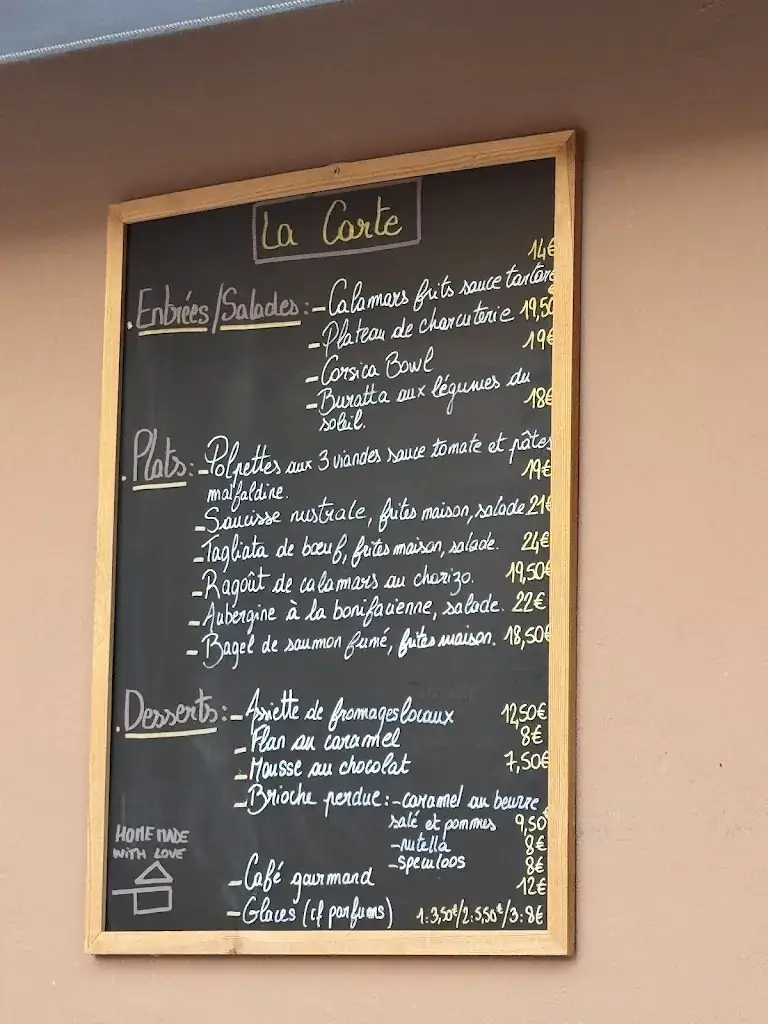 La Carte
14€
. Entrées/Salades : - Calamars frits sauce tartare
- Plateau de charcuterie 19,50
- Corsica Bowl 19€
- Buratta aux légumes du
soleil. 18€
. Plats : - Polpettes aux 3 viandes sauce tomate et pâtes
malfaldine. 19€
- Saucisse nustrale, frites maison, salade 21€
- Tagliata de bœuf, frites maison, salade. 24€
- Ragoût de calamars au chorizo. 19,50€
- Aubergine à la bonifacienne, salade. 22€
- Bagel de saumon fumé, frites maison. 18,50€
. Desserts : - Assiette de fromages locaux 12,50€
- Flan au caramel 8€
- Mousse au chocolat 7,50€
- Brioche perdue : - caramel au beurre
salé et pommes 9,50
- nutella 8€
- speculoos 8€
- Café gourmand 12€
- Glaces (cf parfums) 1:3,50€/2:5,50€/3:8€
HOME MADE
WITH LOVE